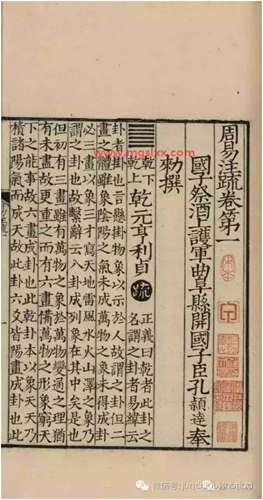 周易注疏卷第一
國子祭酒上護軍曲阜縣開國子臣孔穎達奉
勑撰
乾下
乾上
乾元亨利貞
疏
正義曰乾者此卦之
名謂之卦者易緯云
卦者掛也言懸掛物象以示於人故謂之卦但二
畫之體雖象陰陽之氣未成萬物之象未得成卦
必三畫以象三才寫天地雷風水火山澤之象乃
謂之卦也故繫辭云八卦成列象在其中矣是也
但初有三畫雖有萬物之象於萬物變通之理猶
有未盡故更重之而有六畫備萬物之形象窮天
下之能事故六畫成卦也此乾卦本以象天天乃
積諸陽氣而成天故此卦六爻皆陽畫成卦也此
www.mgsikx.com